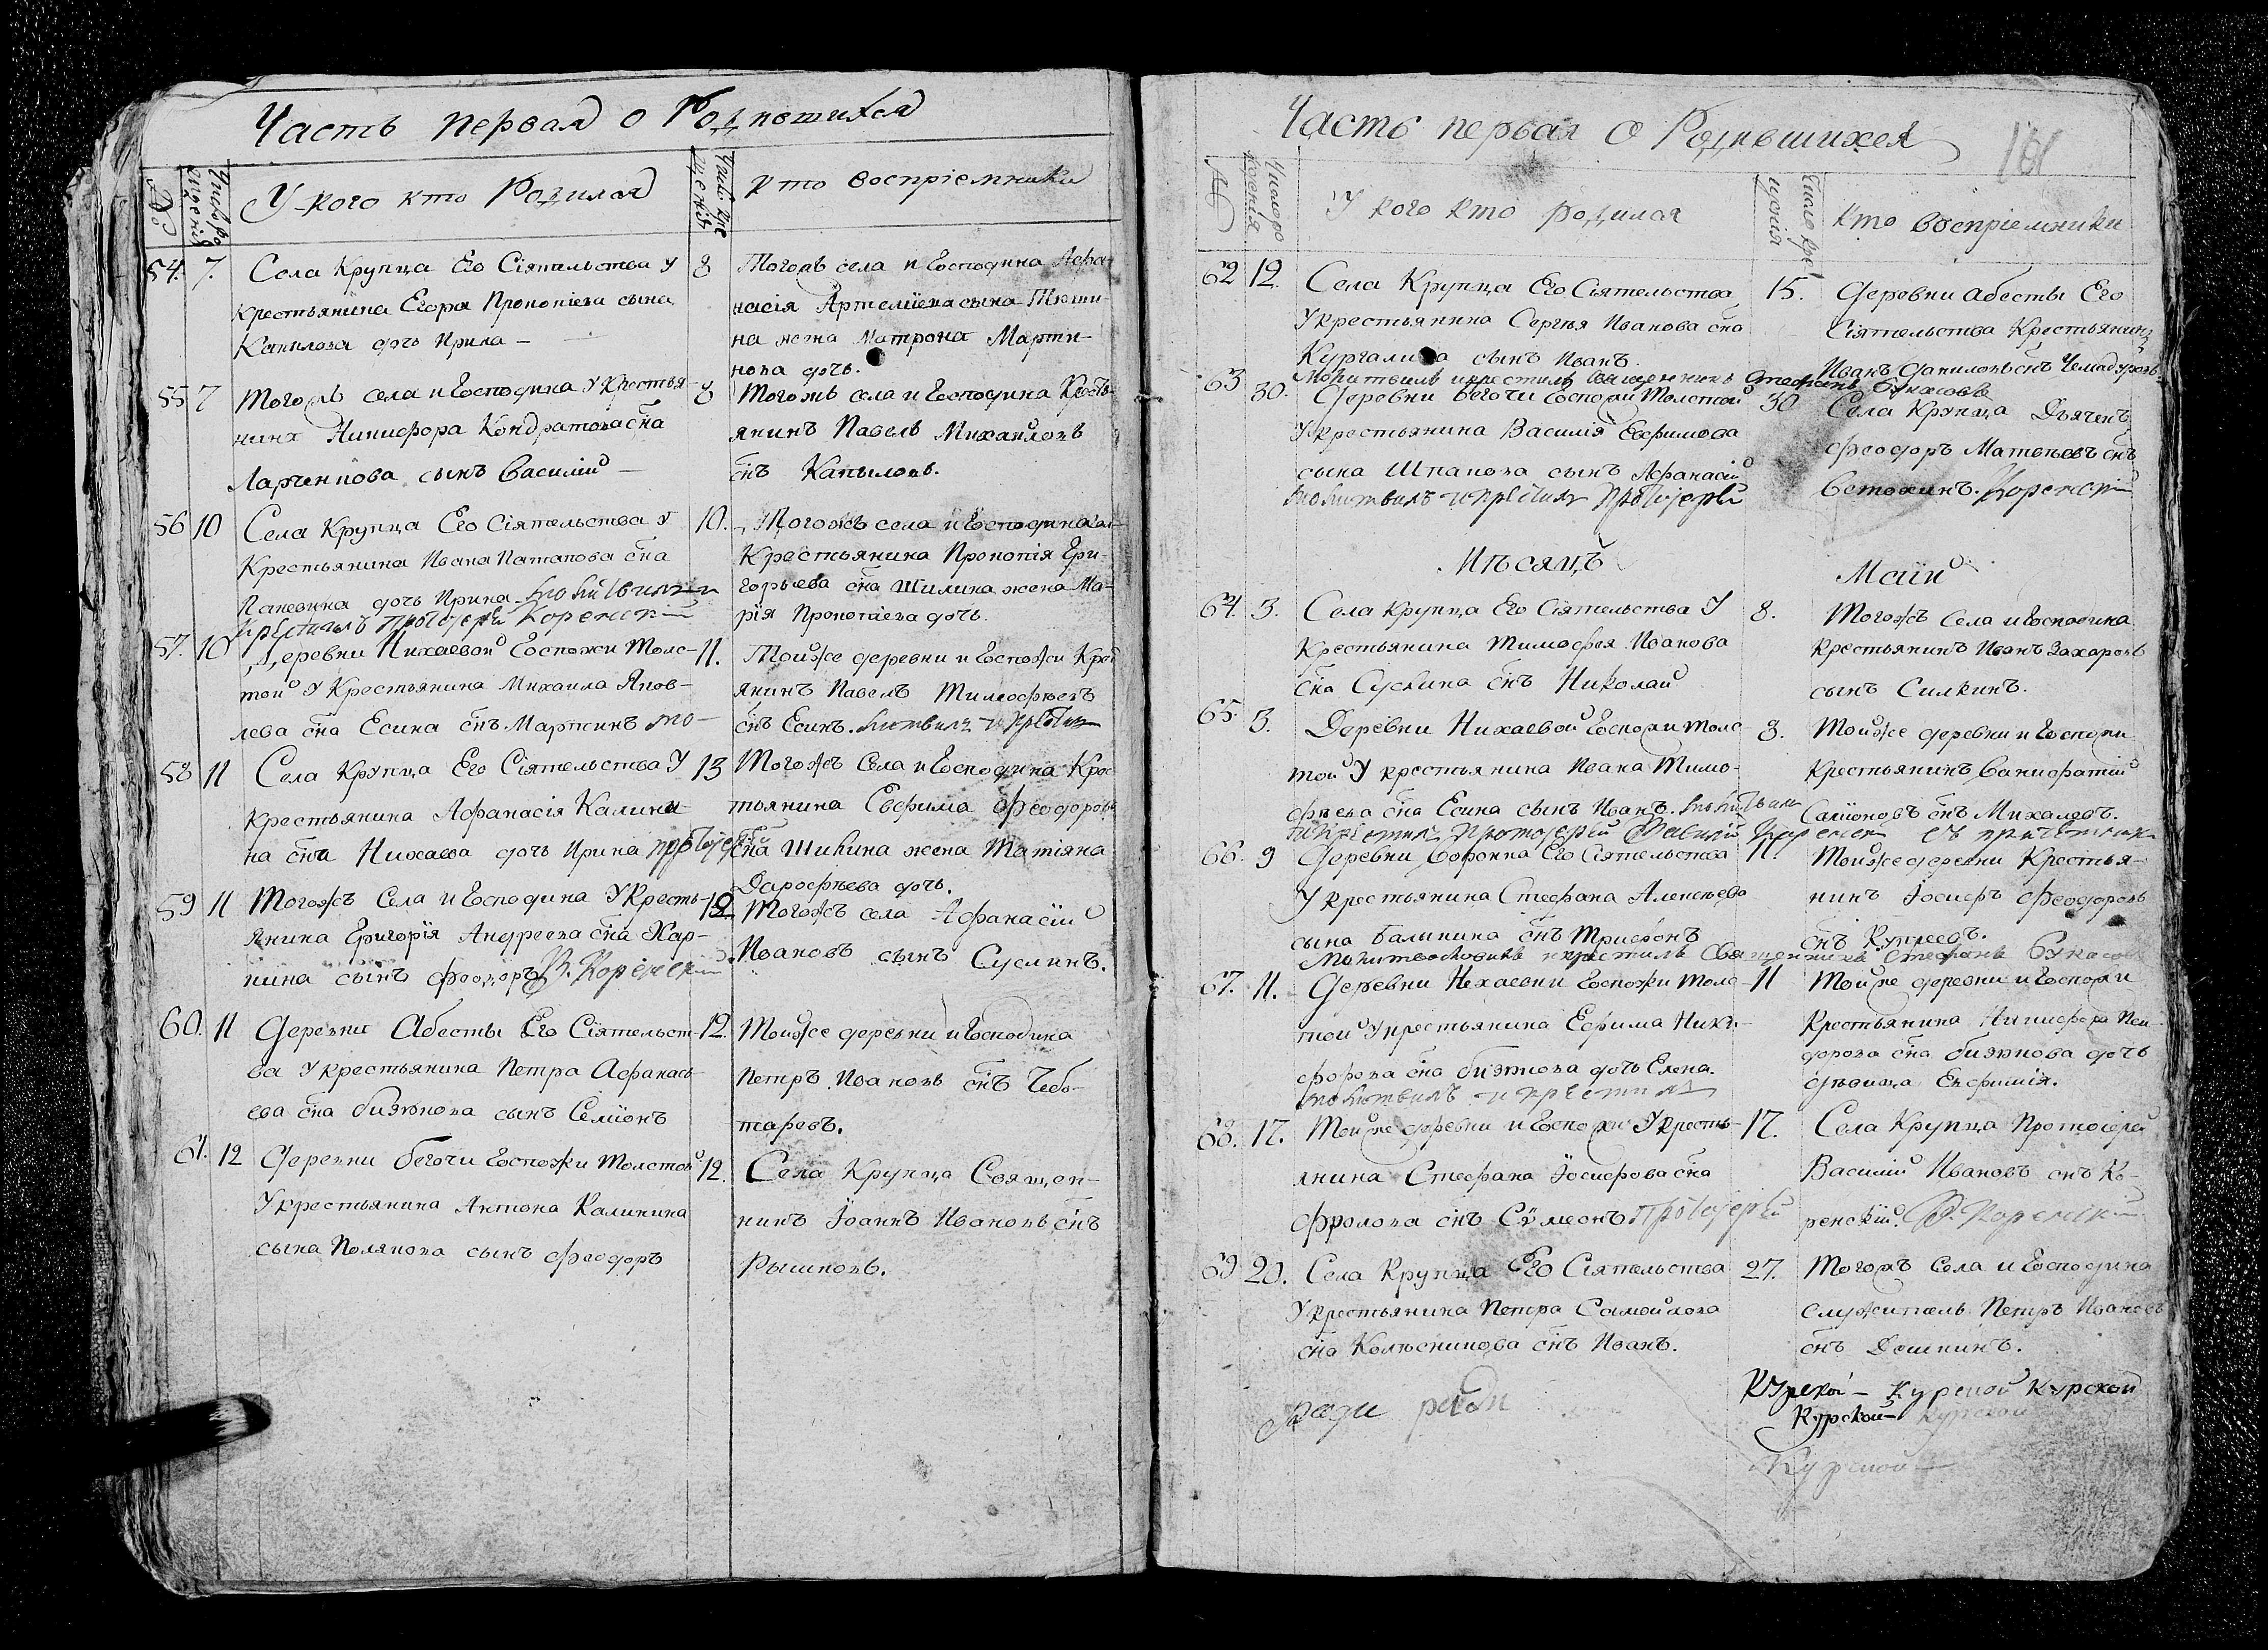 Часть первая о Родившихся
№
Число рождения
У кого кто Родился
Число крещенія
кто воспріемники
54. 7. Села Крупца Его Сіятельства у
крестьянина Егора Прокопіева сына
Копылова дочь Ирина —
8 Тогожъ села и Господина Афа-
насія Артеміева сына
на жена Матрона Марти-
нова дочь.
55 7 Тогожъ села и Господина у крестья-
нина Никифора Кондратова сна
Ларченкова сынъ Василій —
8 Тогожъ села и Господина Кресть-
янинъ Павелъ Михайловъ
снъ Копыловъ.
56 10 Села Крупца Его Сіятельства у
Крестьянина Ивана Патапова сна
дочь Ирина молитвилъ и
крестилъ Протоіерей Коренскій
10. Тогожъ села и Господина
Крестьянина Прокопія Гри-
горьева сна Шилина жена Ма-
рія Прокопіева дочь.
57. 10 Деревни Нихаевой Госпожи Толс-
той у Крестьянина Михаила Яков-
лева сна Есина снъ Мартинъ мо-
11. Тойже деревни и Госпожи Крест
янинъ Павелъ Тимофѣевъ
снъ Есинъ. литвилъ и крестил
58 11 Села Крупца Его Сіятельства у
крестьянина Афанасія Калини-
на сна Нихаева дочь Ирина протоіерей
13 Тогожъ Села и Господина Крес-
тьянина Евфима Феодорова
сна Шикина жена Татіяна
Дорофѣева дочь.
59 11 Тогожъ Села и Господина у Кресть-
янина Григорія Андреева сна Хар-
кина сынъ Феодоръ В. Коренскій
12 Тогожъ села Афанасій
Ивановъ сынъ Суслинъ.
60. 11 Деревни Абесты Его Сіятельст-
ва у крестьянина Петра Афанась-
ева сна Бизюкова сынъ Семіонъ
12. Тойже деревни и Господина
Петръ Ивановъ снъ Чебо-
таревъ.
61. 12 Деревни Бегочи Госпожи Толстой
у крестьянина Антона Калинина
сына Полякова сынъ Феодоръ
12. Села Крупца Священ-
никъ Іоаннъ Ивановъ снъ
Рышковъ.
Часть первая о Родившихся
181
№
Число рожденія
У кого кто родился
Число крещенія
кто воспріемники
62 12. Села Крупца Его Сіятельства
у крестьянина Сергѣя Иванова сна
сынъ Иванъ.
Молитвилъ и крестилъ Священникъ Стефанъ Букасовъ
15. Деревни Абесты Его
Сіятельства Крестьянинъ
Иванъ Даниловъ снъ
63 30. Деревни Бегочи Госпожи Толстой
у крестьянина Василія Евфимова
сына Шпакова сынъ Афанасій
молитвилъ и крестилъ Протоіерей
30 Села Крупца Дьяченъ
Феодоръ Матвѣевъ снъ
Коренскій
Мѣсяцъ Маій
64. 3. Села Крупца Его Сіятельства у
Крестьянина Тимофея Иванова
сна Суслина снъ Николай
8. Тогожъ Села и Господина
крестьянинъ Иванъ Захаровъ
сынъ Силкинъ.
65. 3. Деревни Нихаевой Госпожи Толс
той у крестьянина Ивана Тимо-
фѣева сна Есина сынъ Иванъ. молитвилъ
и крестилъ Протоіерей Василій Коренскій съ причетники
8. Тойже деревни и Госпожи
Крестьянинъ Вонифатій
Семіоновъ снъ Михалевъ.
66. 9 Деревни Его Сіятельства
у крестьянина Стефана Алексѣева
сына Балыкина снъ Трифонъ
Молитвословилъ и крестилъ Священникъ Стефанъ Букасовъ
11. Тойже деревни Крестья-
нинъ Іосифъ Феодоровъ
снъ Купреевъ.
67. 11. Деревни Нехаевки Госпожи Толс
той у крестьянина Ефима Ники-
форова сна Бизюкова дочь Елена.
молитвилъ и крестилъ
11 Тойже деревни и Госпожи
Крестьянина Никифора Иси-
дорова сна Бизюкова дочь
дѣвица Евфимія.
68. 17. Тойже деревни и Госпожи у кресть-
янина Стефана Іосифова сна
Фролова снъ Сѵмеонъ Протоіерей
17. Села Крупца Протоіерей
Василій Ивановъ снъ Ко-
ренскій. В. Коренскій
69 20. Села Крупца Его Сіятельства
у крестьянина Петра Самойлова
сна Колѣсникова снъ Иванъ.
27. Тогожъ Села и Господина
служитель Петръ Ивановъ
снъ Дошкинъ.
Курской — Курской Курской
Курской — Курской
Курской —